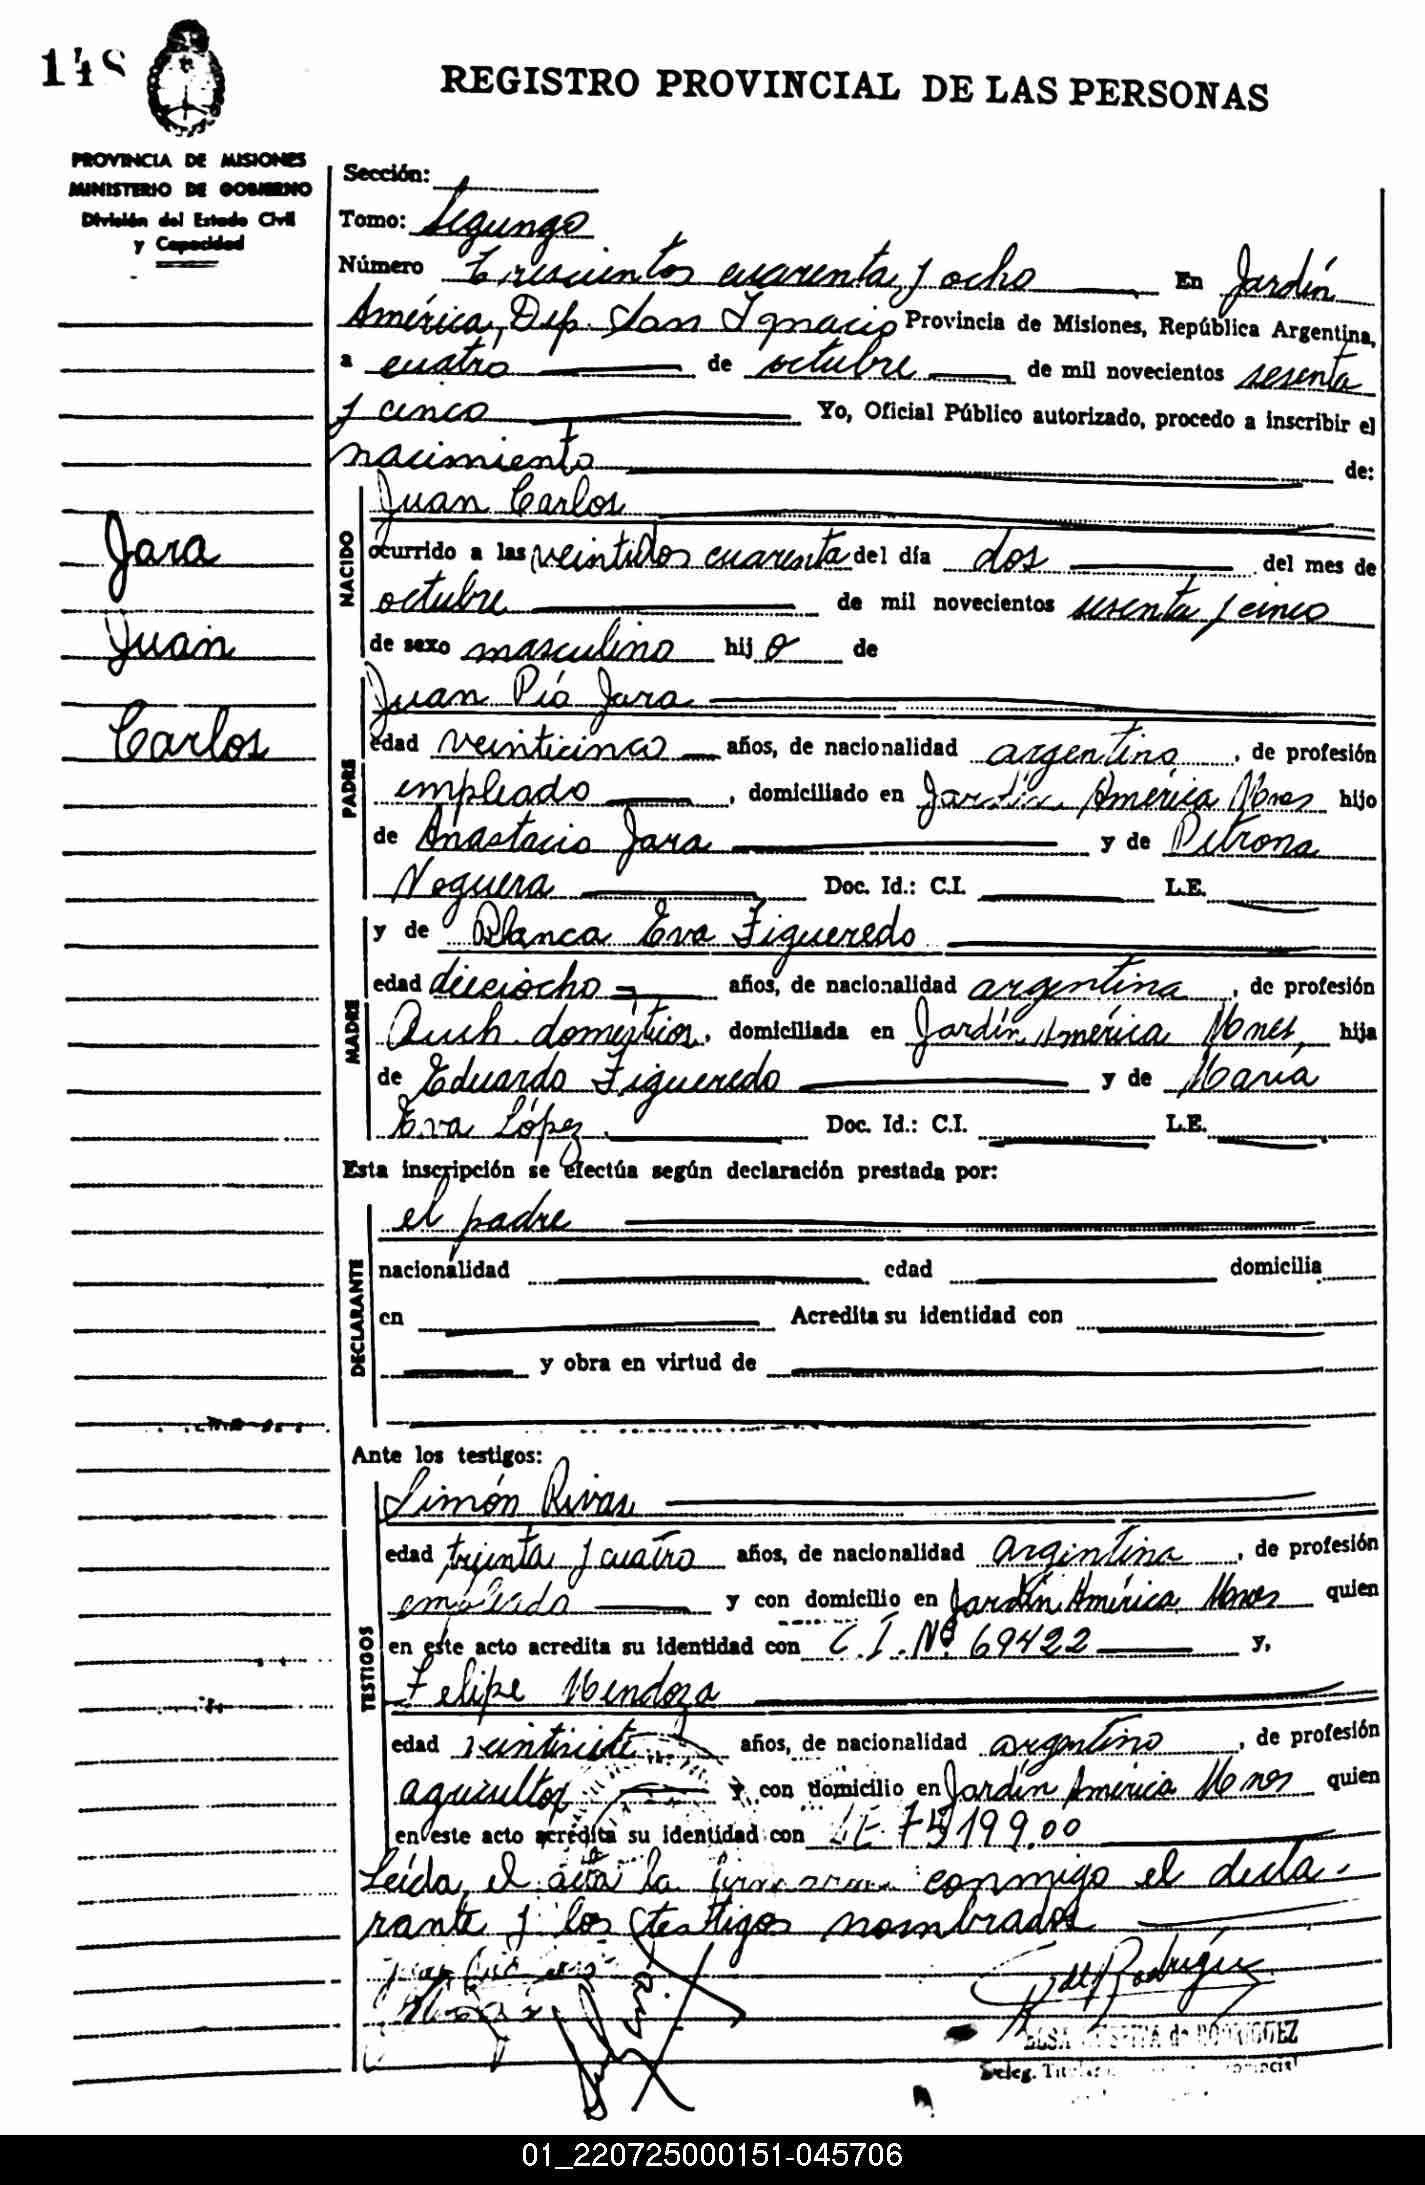 148
REGISTRO PROVINCIAL DE LAS PERSONAS
PROVINCIA DE MISIONES
MINISTERIO DE GOBIERNO
División del Estado Civil
y Capacidad
Jara
Juan
Carlos
Sección:
Tomo: Segungo
Número Trescientos cuarenta y ocho En Jardín
América, Dep. San Ignacio Provincia de Misiones, República Argentina,
a cuatro de octubre de mil novecientos sesenta
y cinco Yo, Oficial Público autorizado, procedo a inscribir el
nacimiento de:
NACIDO
Juan Carlos
ocurrido a las veintidos cuarenta del día dos del mes de
octubre de mil novecientos sesenta y cinco
de sexo masculino hijo de
PADRE
Juan Pío Jara
edad veinticinco años, de nacionalidad argentino, de profesión
empleado, domiciliado en Jardín América Mnes hijo
de Anastacio Jara y de Petrona
Noguera Doc. Id.: C.I. L.E.
MADRE
y de Blanca Eva Figueredo
edad dieciocho años, de nacionalidad argentina, de profesión
Queh. domésticos, domiciliada en Jardín América Mnes, hija
de Eduardo Figueredo y de María
Eva López. Doc. Id.: C.I. L.E.
Esta inscripción se efectúa según declaración prestada por:
DECLARANTE
el padre
nacionalidad edad domicilia
en Acredita su identidad con
y obra en virtud de
Ante los testigos:
TESTIGOS
Simón Rivas
edad treinta y cuatro años, de nacionalidad argentina, de profesión
empleado y con domicilio en Jardín América Mnes quien
en este acto acredita su identidad con C.I. Nº 69422 y,
Felipe Mendoza
edad veintisiete años, de nacionalidad argentino, de profesión
agricultor y con domicilio en Jardín América Mnes quien
en este acto acredita su identidad con LE
Leída el acta la conmigo el decla-
rante y los testigos nombrados
Rodríguez
ELSA de RODRIGUEZ
Deleg. Titular
01_220725000151-045706